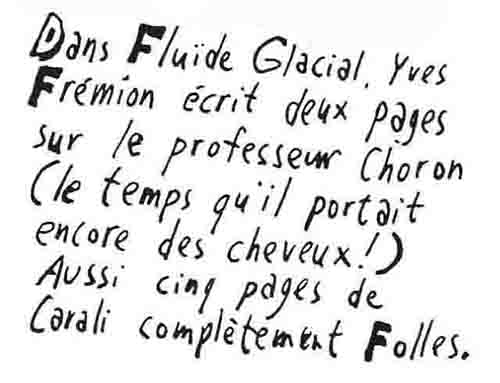 Dans Fluïde Glacial, Yves
Frémion écrit deux pages
sur le professeur Choron
(le temps qu'il portait
encore des cheveux!)
Aussi cinq pages de
Carali complètement Folles.